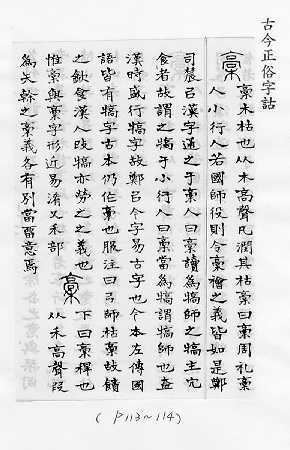 古今正俗字詁
槀 木枯也从木高聲凡潤其枯槀曰槀周礼槀
人小行人若國師役則令槀禬之義皆如是鄭
司農㠯漢字通之于槀人曰槀讀為犒師之犒主冗
食者故謂之犒于小行人曰槀當為犒謂犒師也蓋
漢時盛行犒字故鄭㠯今字易古字也今本左傳國
語皆有犒字古本仍作槀也服注曰㠯師枯槀故饋
之飲食漢人犒亦勞之之義也 稾 下曰稾稈也
惟槀與稾字形近易淆又禾部 从禾高聲叚
為矢榦之稾義各有別當畱意焉
(P113~114)